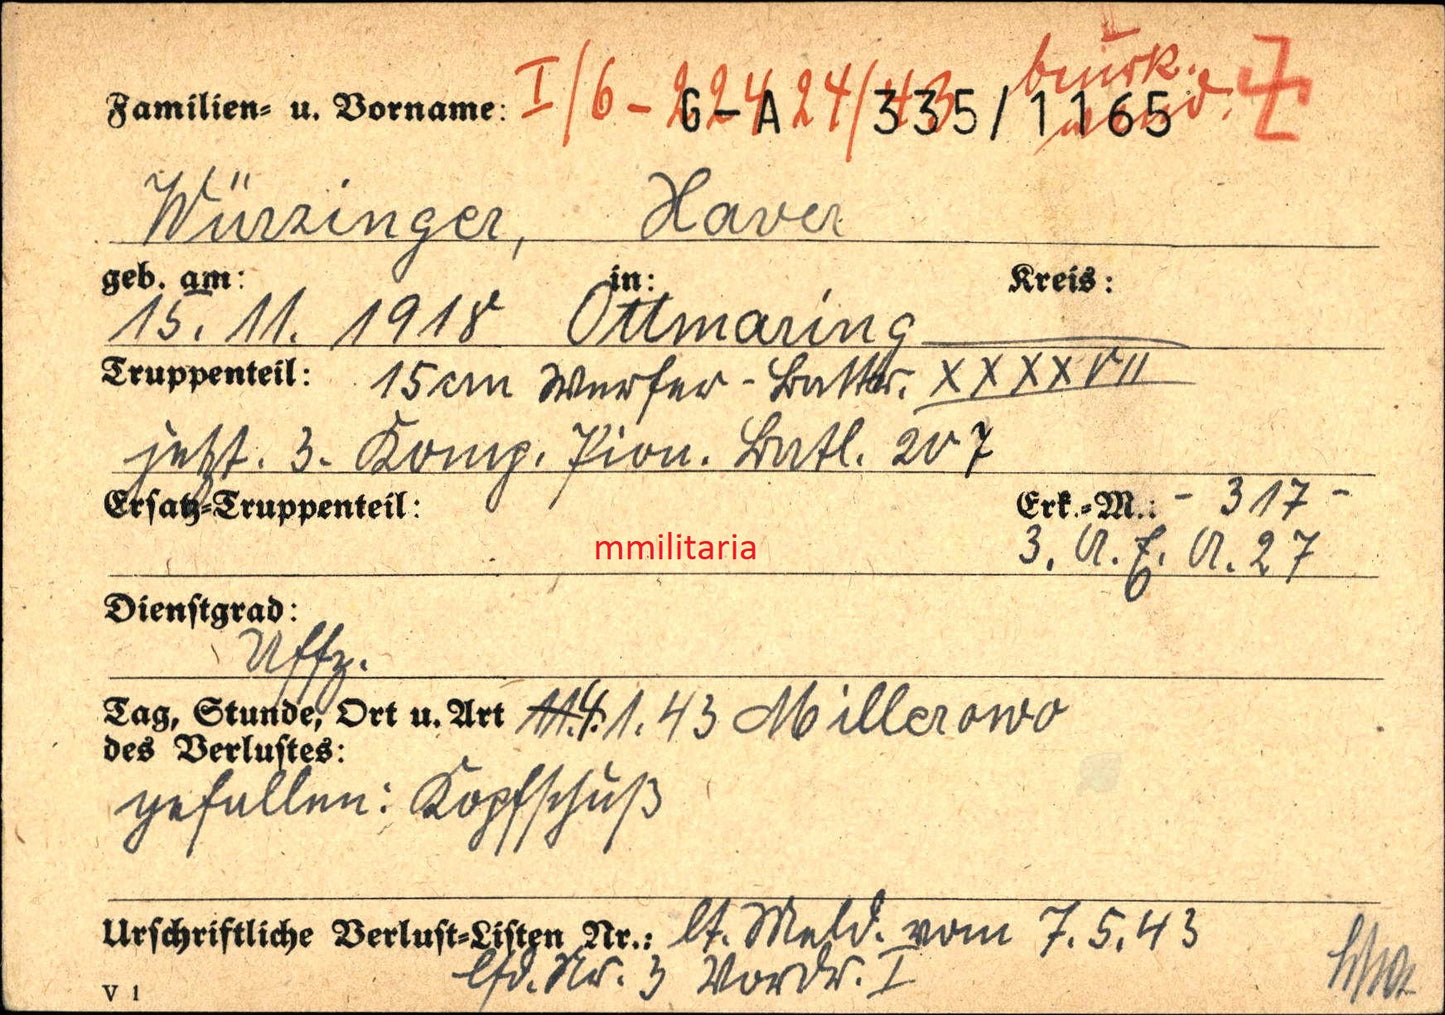 I/6 - 22424/43 beurk.
Familien- u. Vorname: G-A 335/1165
Würzinger, Xaver
geb. am: in: Kreis:
15. 11. 1918 Ottmaring
Truppenteil: 15cm Werfer-Battr. XXXXVII
jetzt. 3. Komp. Pion. Batl. 207
Ersatz-Truppenteil: Erk.-M.: - 317 -
mmilitaria
3. A. E. A. 27
Dienstgrad:
Uffz.
Tag, Stunde, Ort u. Art 1.43 Millerowo
des Verlustes:
gefallen: Kopfschuß
Urschriftliche Verlust-Listen Nr.: lt. Meld. vom 7.5.43
lfd. Nr. 3 Vordr. I
V 1